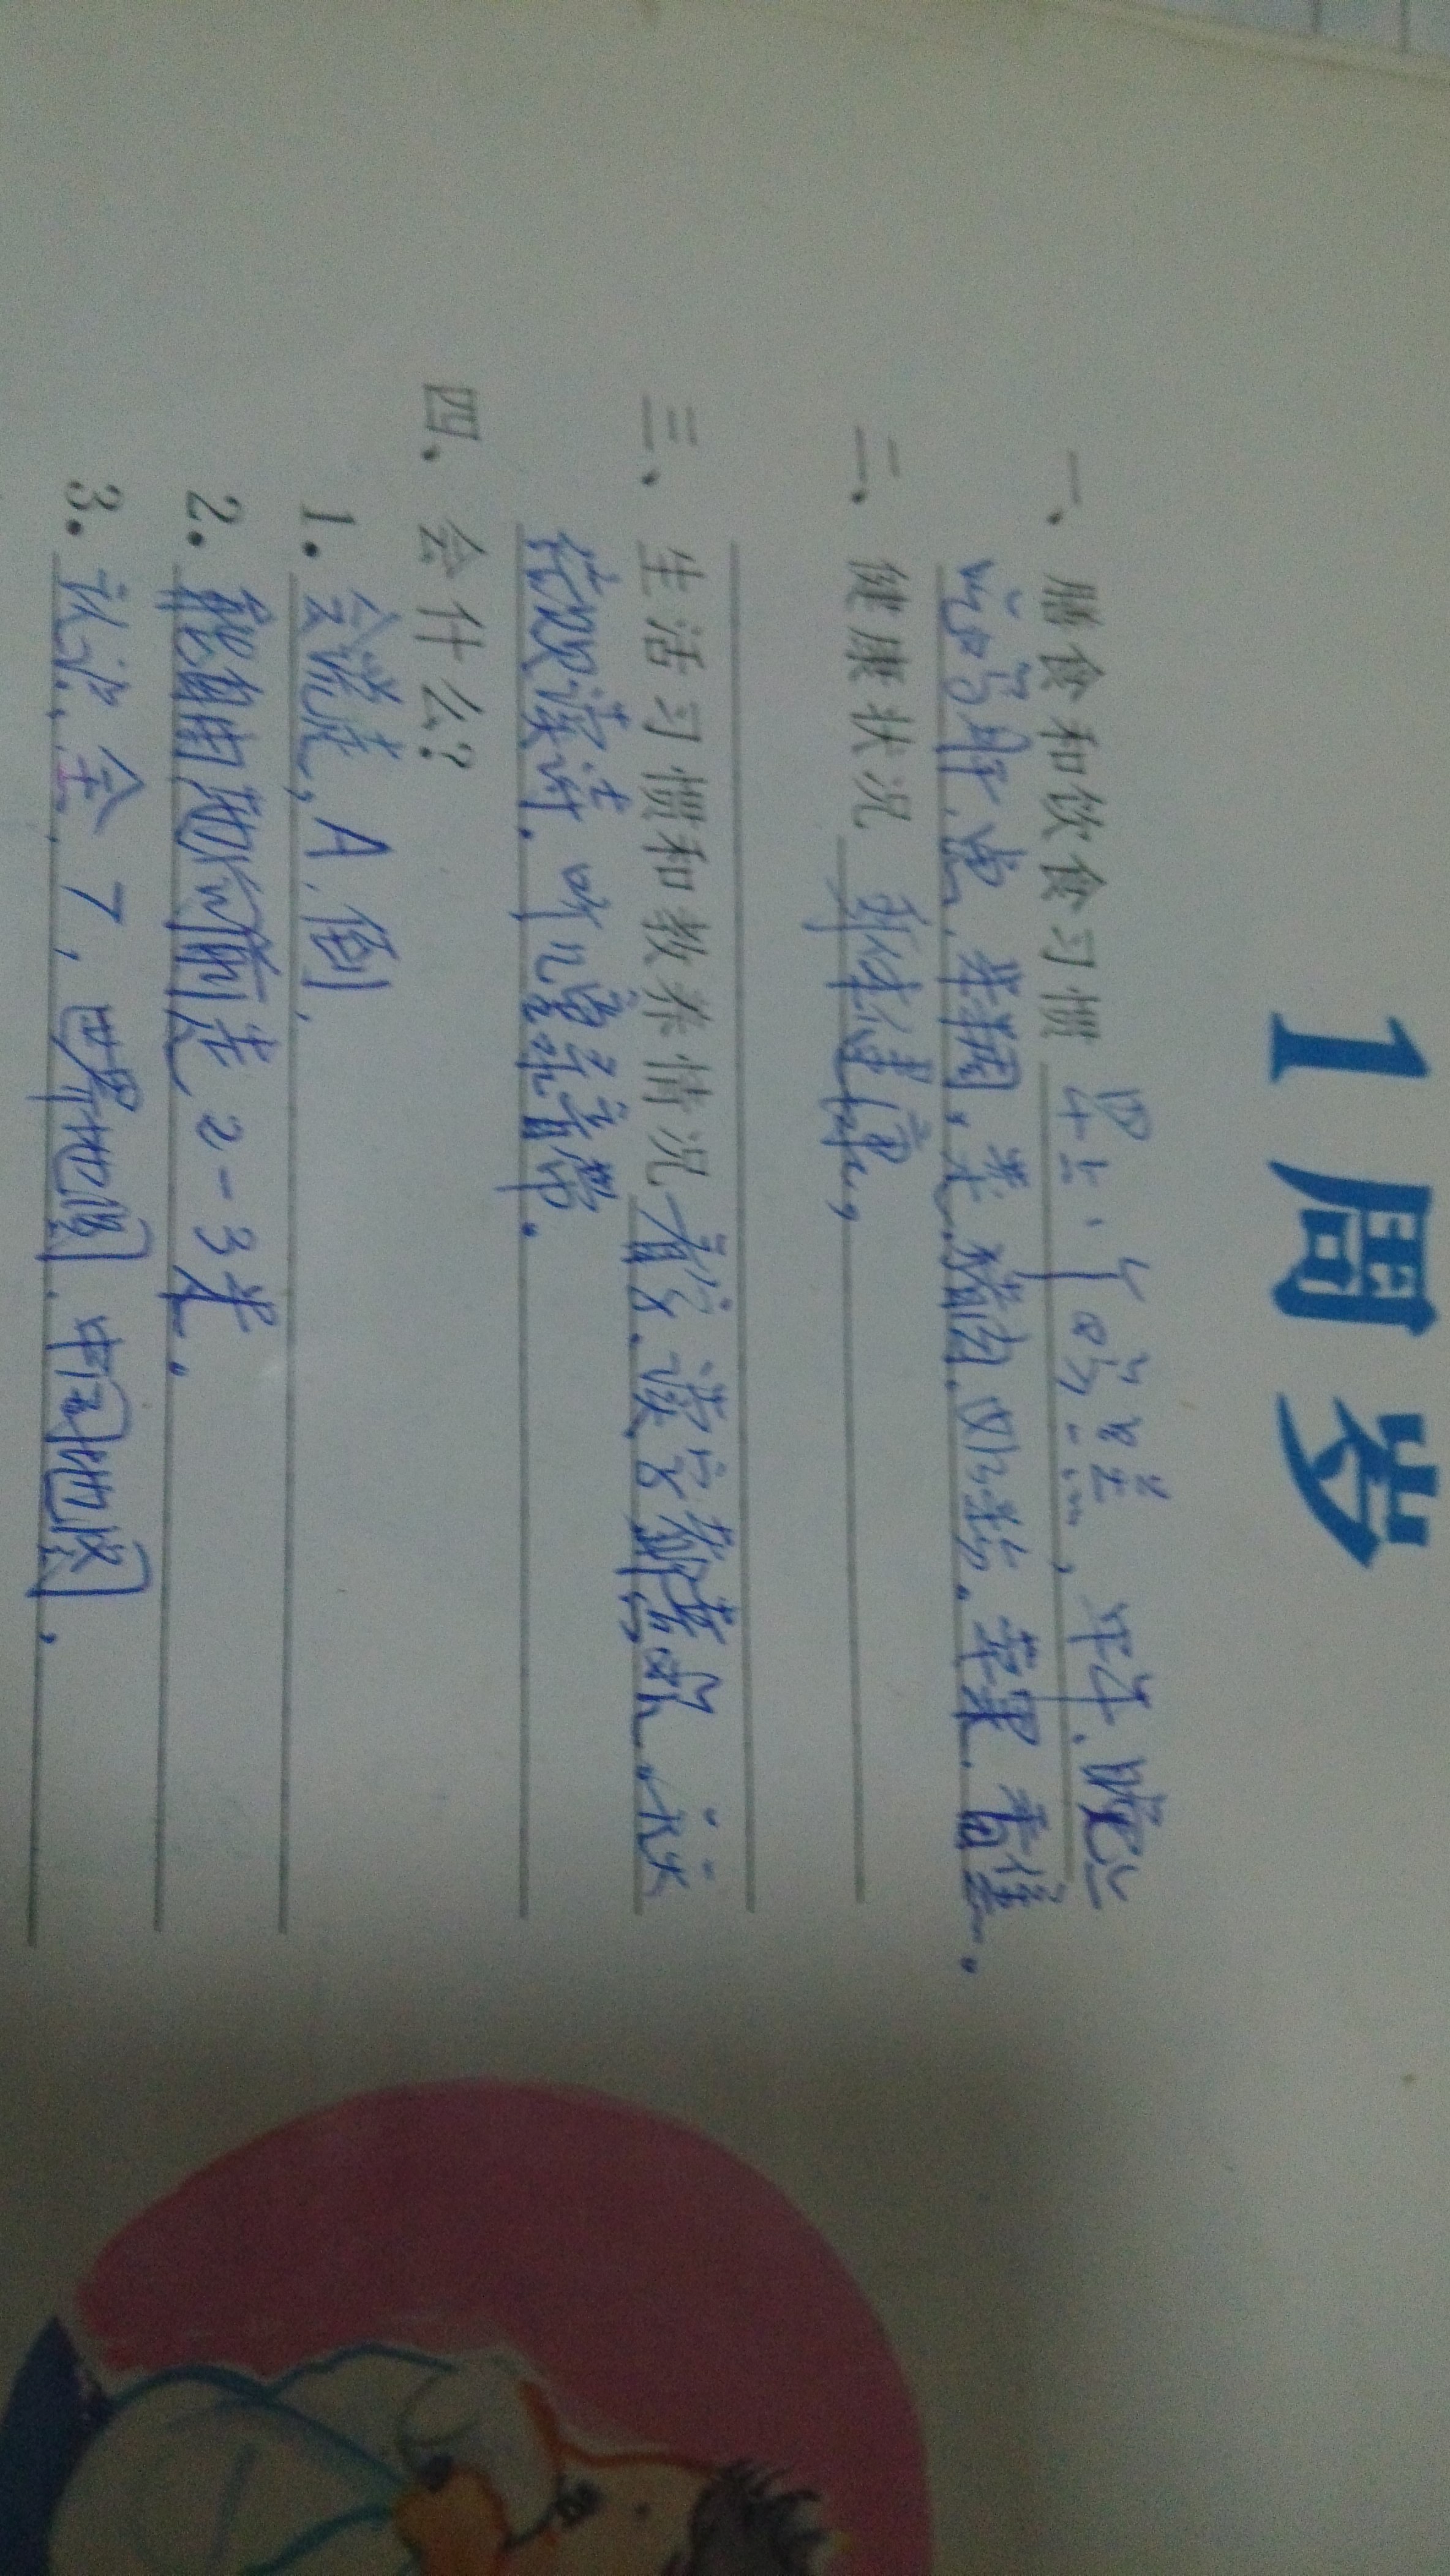 1周岁
一、膳食和饮食习惯 早上一个鸡蛋糕,中午、晚上
吃鸡肝、鱼、米粥、菜、猪肉、奶粉。苹果、香焦。
二、健康状况 身体健康,
三、生活习惯和教养情况 看字、读字都喜欢、天天
读诗、听儿童录音带。
四、会什么?
1.会说走,A、倒,
2.能自由地向前走2-3米。
3.认识、全、7,世界地图、中国地图,